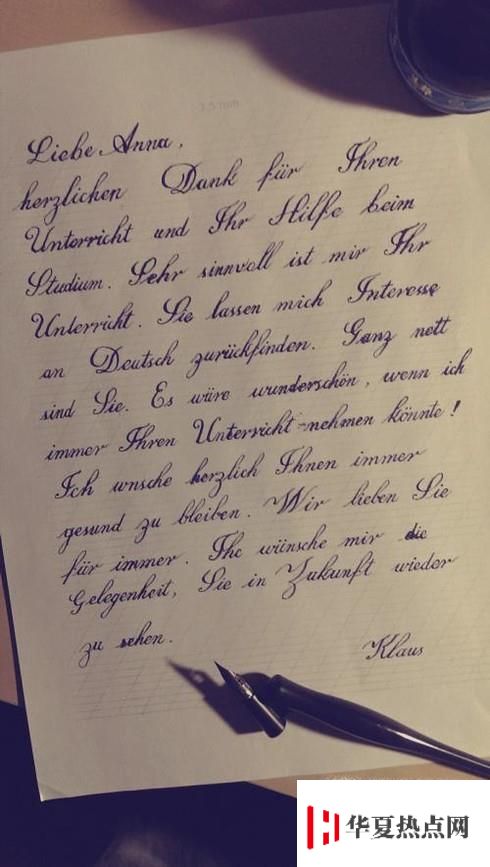 3,5 mm
Liebe Anna,
herzlichen Dank für Ihren
Unterricht und Ihr Hilfe beim
Studium. Sehr sinnvoll ist mir Ihr
Unterricht. Sie lassen mich Interesse
an Deutsch zurückfinden. Ganz nett
sind Sie. Es wäre wunderschön, wenn ich
immer Ihren Unterricht-nehmen könnte!
Ich wnsche herzlich Ihnen immer
gesund zu bleiben. Wir lieben Sie
für immer. Ihc wünsche mir die
Gelegenheit, Sie in Zukunft wieder
zu sehen.
Klaus
华夏热点网